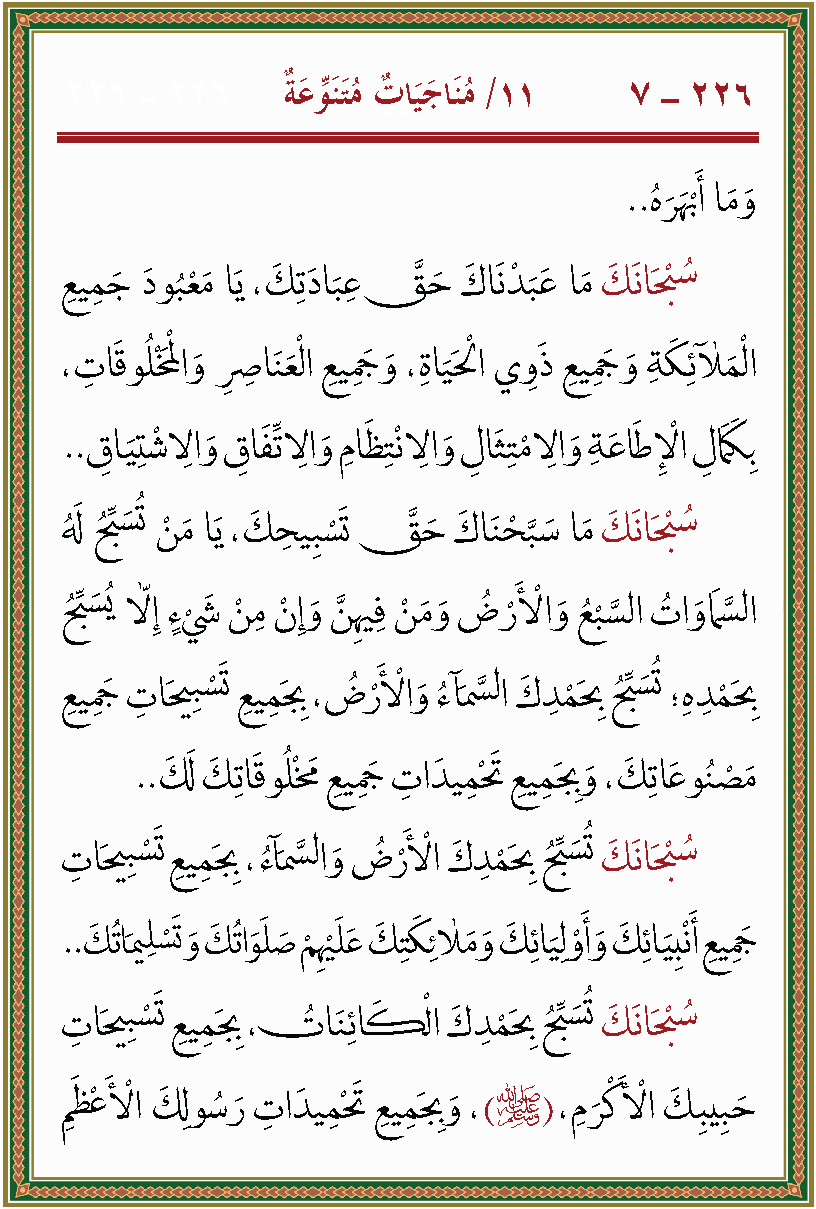 ٢٢٦ – ٧ ١١/ مُنَاجَيَاتٌ مُتَنَوِّعَةٌ ٢٢٦ – ٢٢٦
وَمَا أَبْهَرَهُ..
سُبْحَانَكَ مَا عَبَدْنَاكَ حَقَّ عِبَادَتِكَ، يَا مَعْبُودَ جَمِيعِ
الْمَلَآئِكَةِ وَجَمِيعِ ذَوِي الْحَيَاةِ، وَجَمِيعِ الْعَنَاصِرِ وَالْمَخْلُوقَاتِ،
بِكَمَالِ الْإِطَاعَةِ وَالِامْتِثَالِ وَالِانْتِظَامِ وَالِاتِّفَاقِ وَالِاشْتِيَاقِ..
سُبْحَانَكَ مَا سَبَّحْنَاكَ حَقَّ تَسْبِيحِكَ، يَا مَنْ تُسَبِّحُ لَهُ
السَّمَاوَاتُ السَّبْعُ وَالْأَرْضُ وَمَنْ فِيهِنَّ وَإِنْ مِنْ شَيْءٍ إِلَّا يُسَبِّحُ
بِحَمْدِهِ؛ تُسَبِّحُ بِحَمْدِكَ السَّمَآءُ وَالْأَرْضُ، بِجَمِيعِ تَسْبِيحَاتِ جَمِيعِ
مَصْنُوعَاتِكَ، وَبِجَمِيعِ تَحْمِيدَاتِ جَمِيعِ مَخْلُوقَاتِكَ لَكَ..
سُبْحَانَكَ تُسَبِّحُ بِحَمْدِكَ الْأَرْضُ وَالسَّمَآءُ، بِجَمِيعِ تَسْبِيحَاتِ
جَمِيعِ أَنْبِيَائِكَ وَأَوْلِيَائِكَ وَمَلَائِكَتِكَ عَلَيْهِمْ صَلَوَاتُكَ وَتَسْلِيمَاتُكَ..
سُبْحَانَكَ تُسَبِّحُ بِحَمْدِكَ الْكَائِنَاتُ، بِجَمِيعِ تَسْبِيحَاتِ
حَبِيبِكَ الْأَكْرَمِ، (ﷺ)، وَبِجَمِيعِ تَحْمِيدَاتِ رَسُولِكَ الْأَعْظَمِ